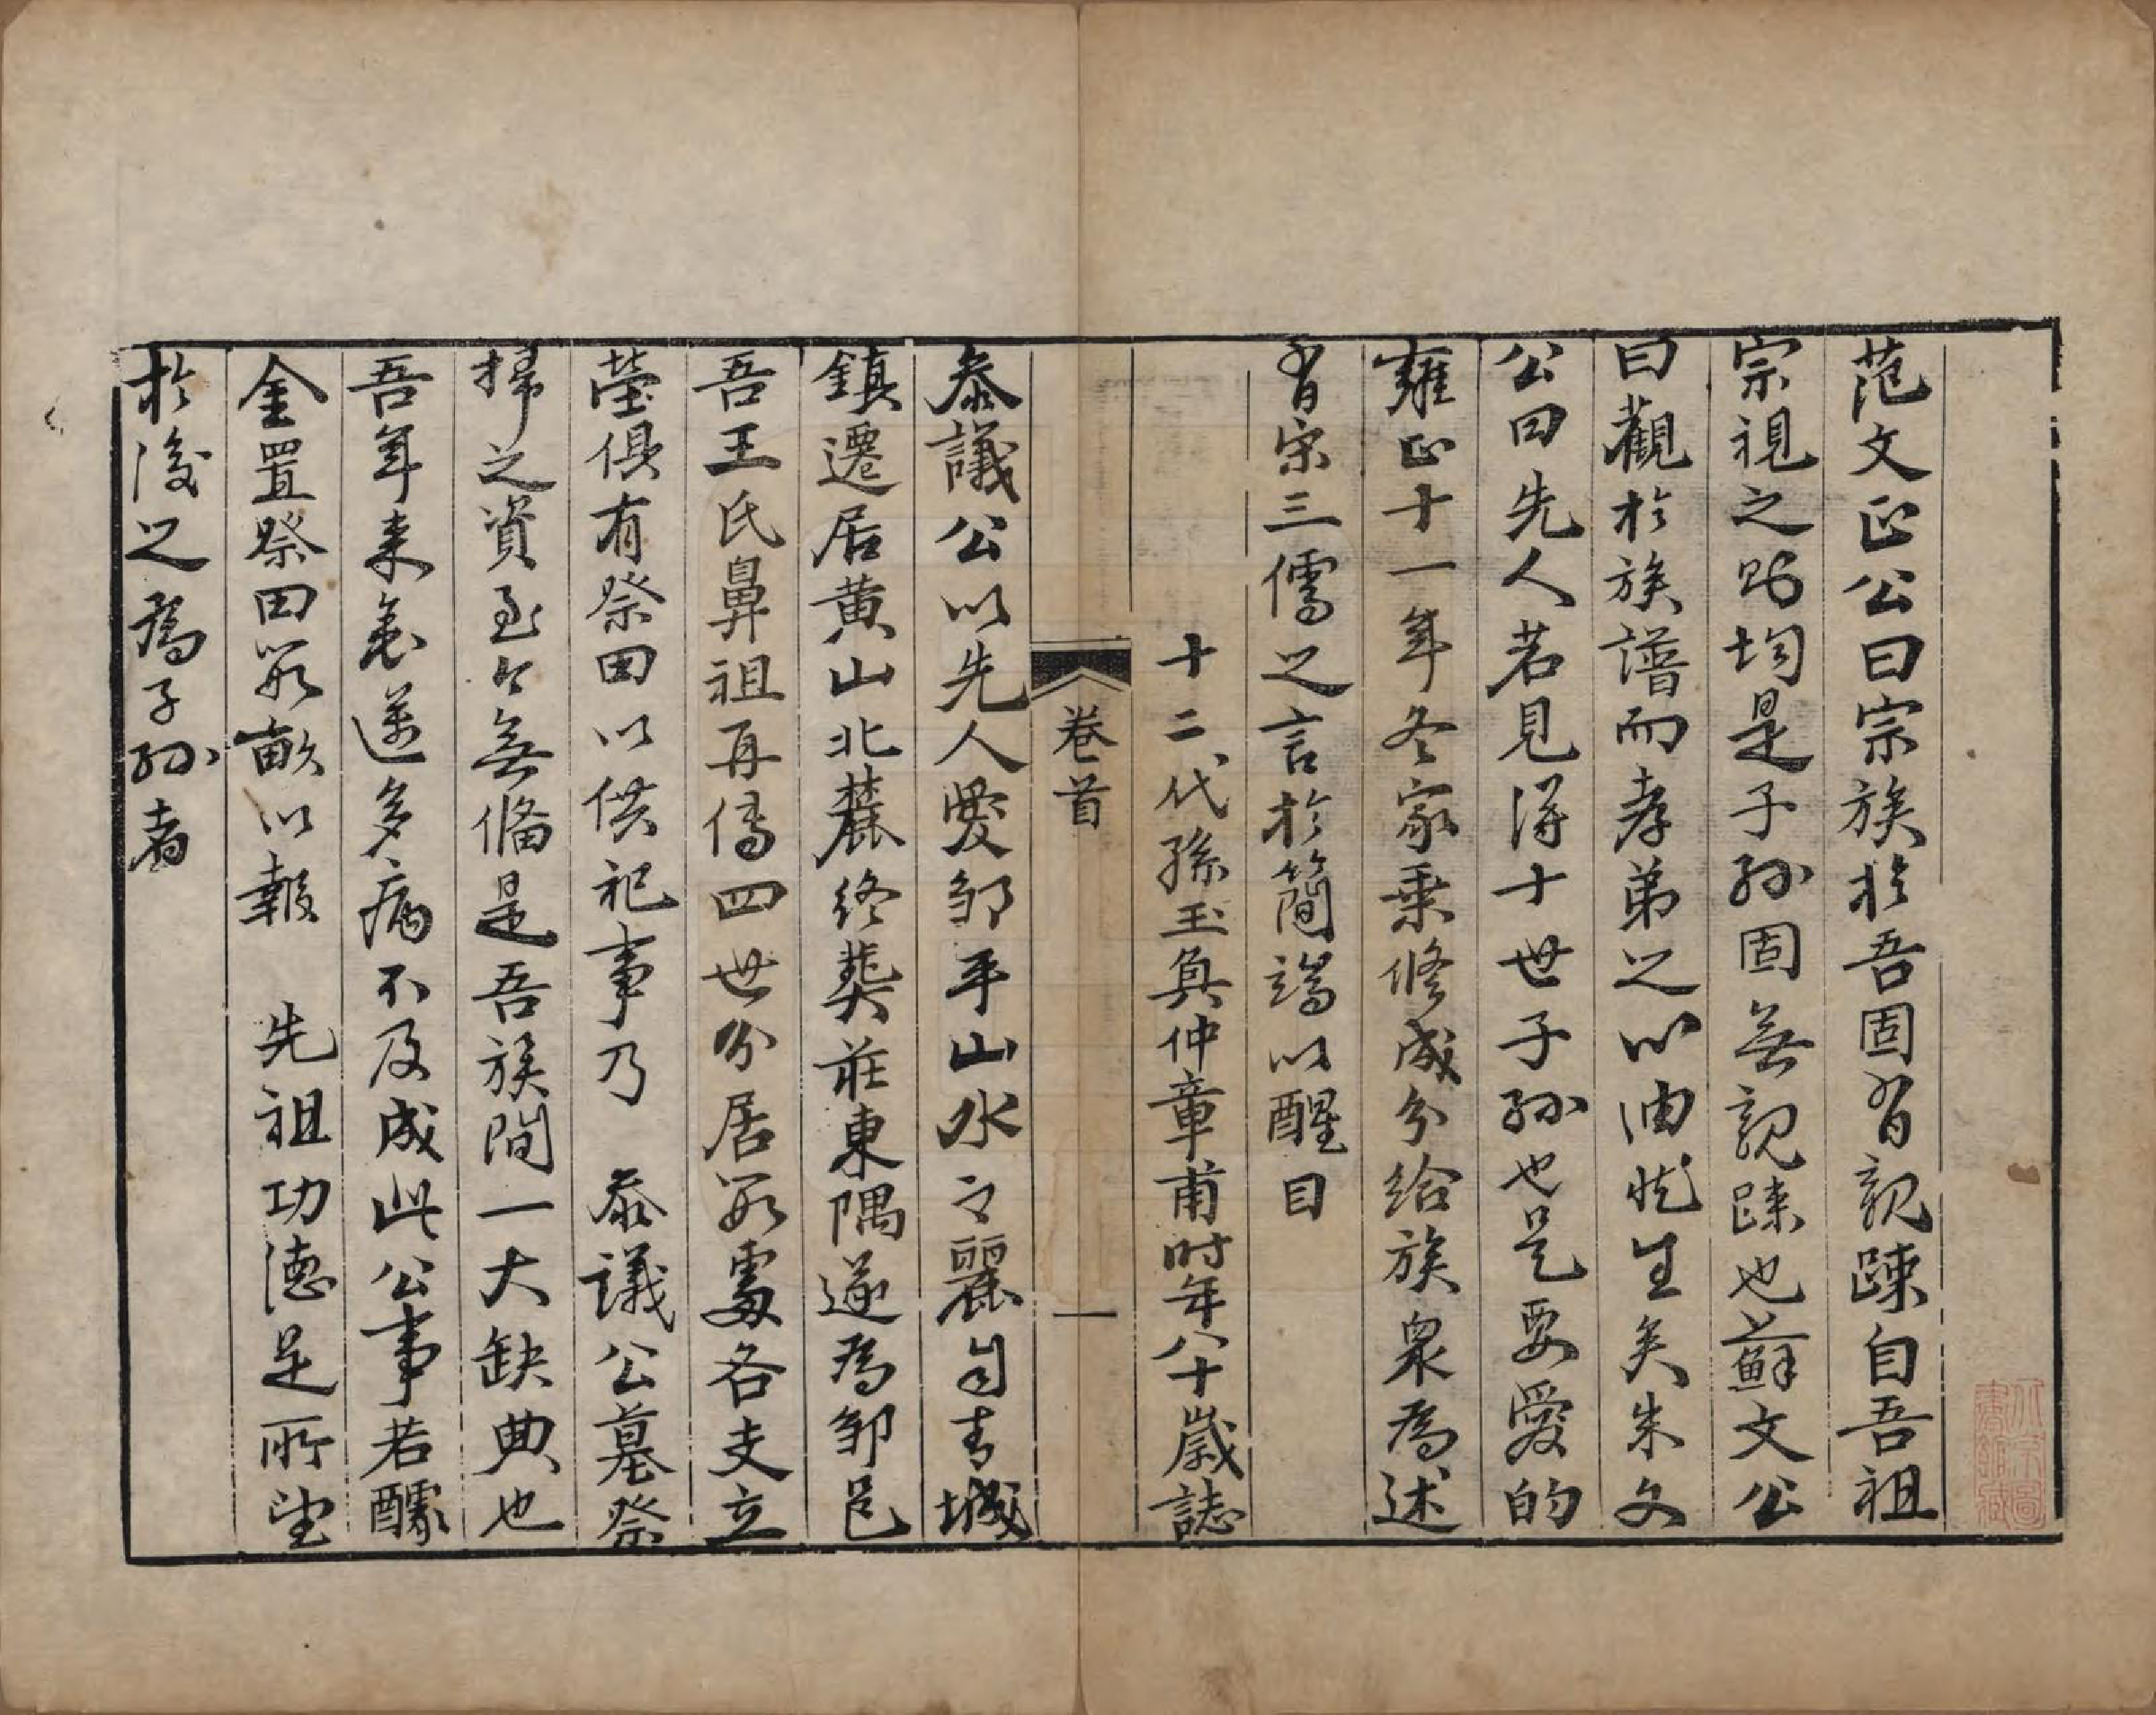 范文正公曰宗族於吾固有親踈自吾祖
宗視之則均是子孫固無親踈也蘇文公
曰觀於族譜而孝弟之心油然生矣朱文
公曰先人若見得十世子孫也是要愛的
雍正十一年冬家乗修成分给族衆為述
有宋三儒之言於簡端以醒目
十二代孫玉真仲章甫时年八十嵗誌
卷首
一
叅議公以先人愛邹平山水之麗自青城
鎮遷居黄山北麓终葬莊東隅遂為邹邑
吾王氏鼻祖再傳四世分居數處各支立
塋俱有祭田以供祀事乃 叅議公墓祭
掃之資至今無偹是吾族間一大缺典也
吾年来衰遅多病不及成此公事若醵
金置祭田數畝以報 先祖功德是所望
於後之為子孫者